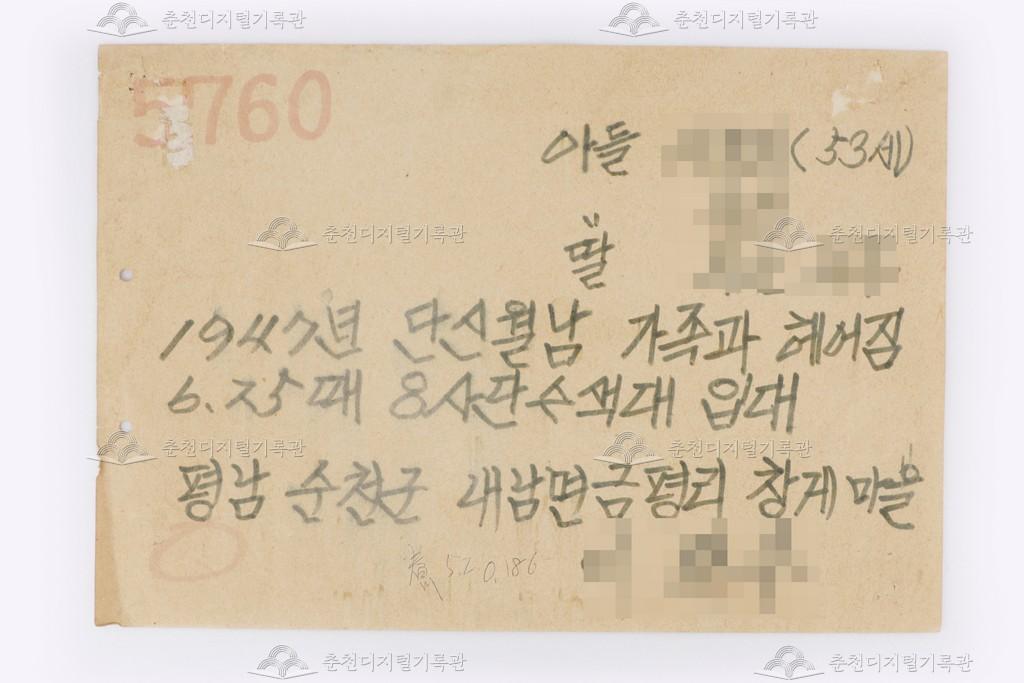 5760
아들 (53세)
딸
1947년 단신월남 가족과 헤어짐
6.25때 8사단수색대 입대
평남 순천군 내남면금평리 창게마을
5.2 0.186
춘천디지털기록관
춘천디지털기록관
춘천디지털기록관
춘천디지털기록관
춘천디지털기록관
춘천디지털기록관
춘천디지털기록관
춘천디지털기록관